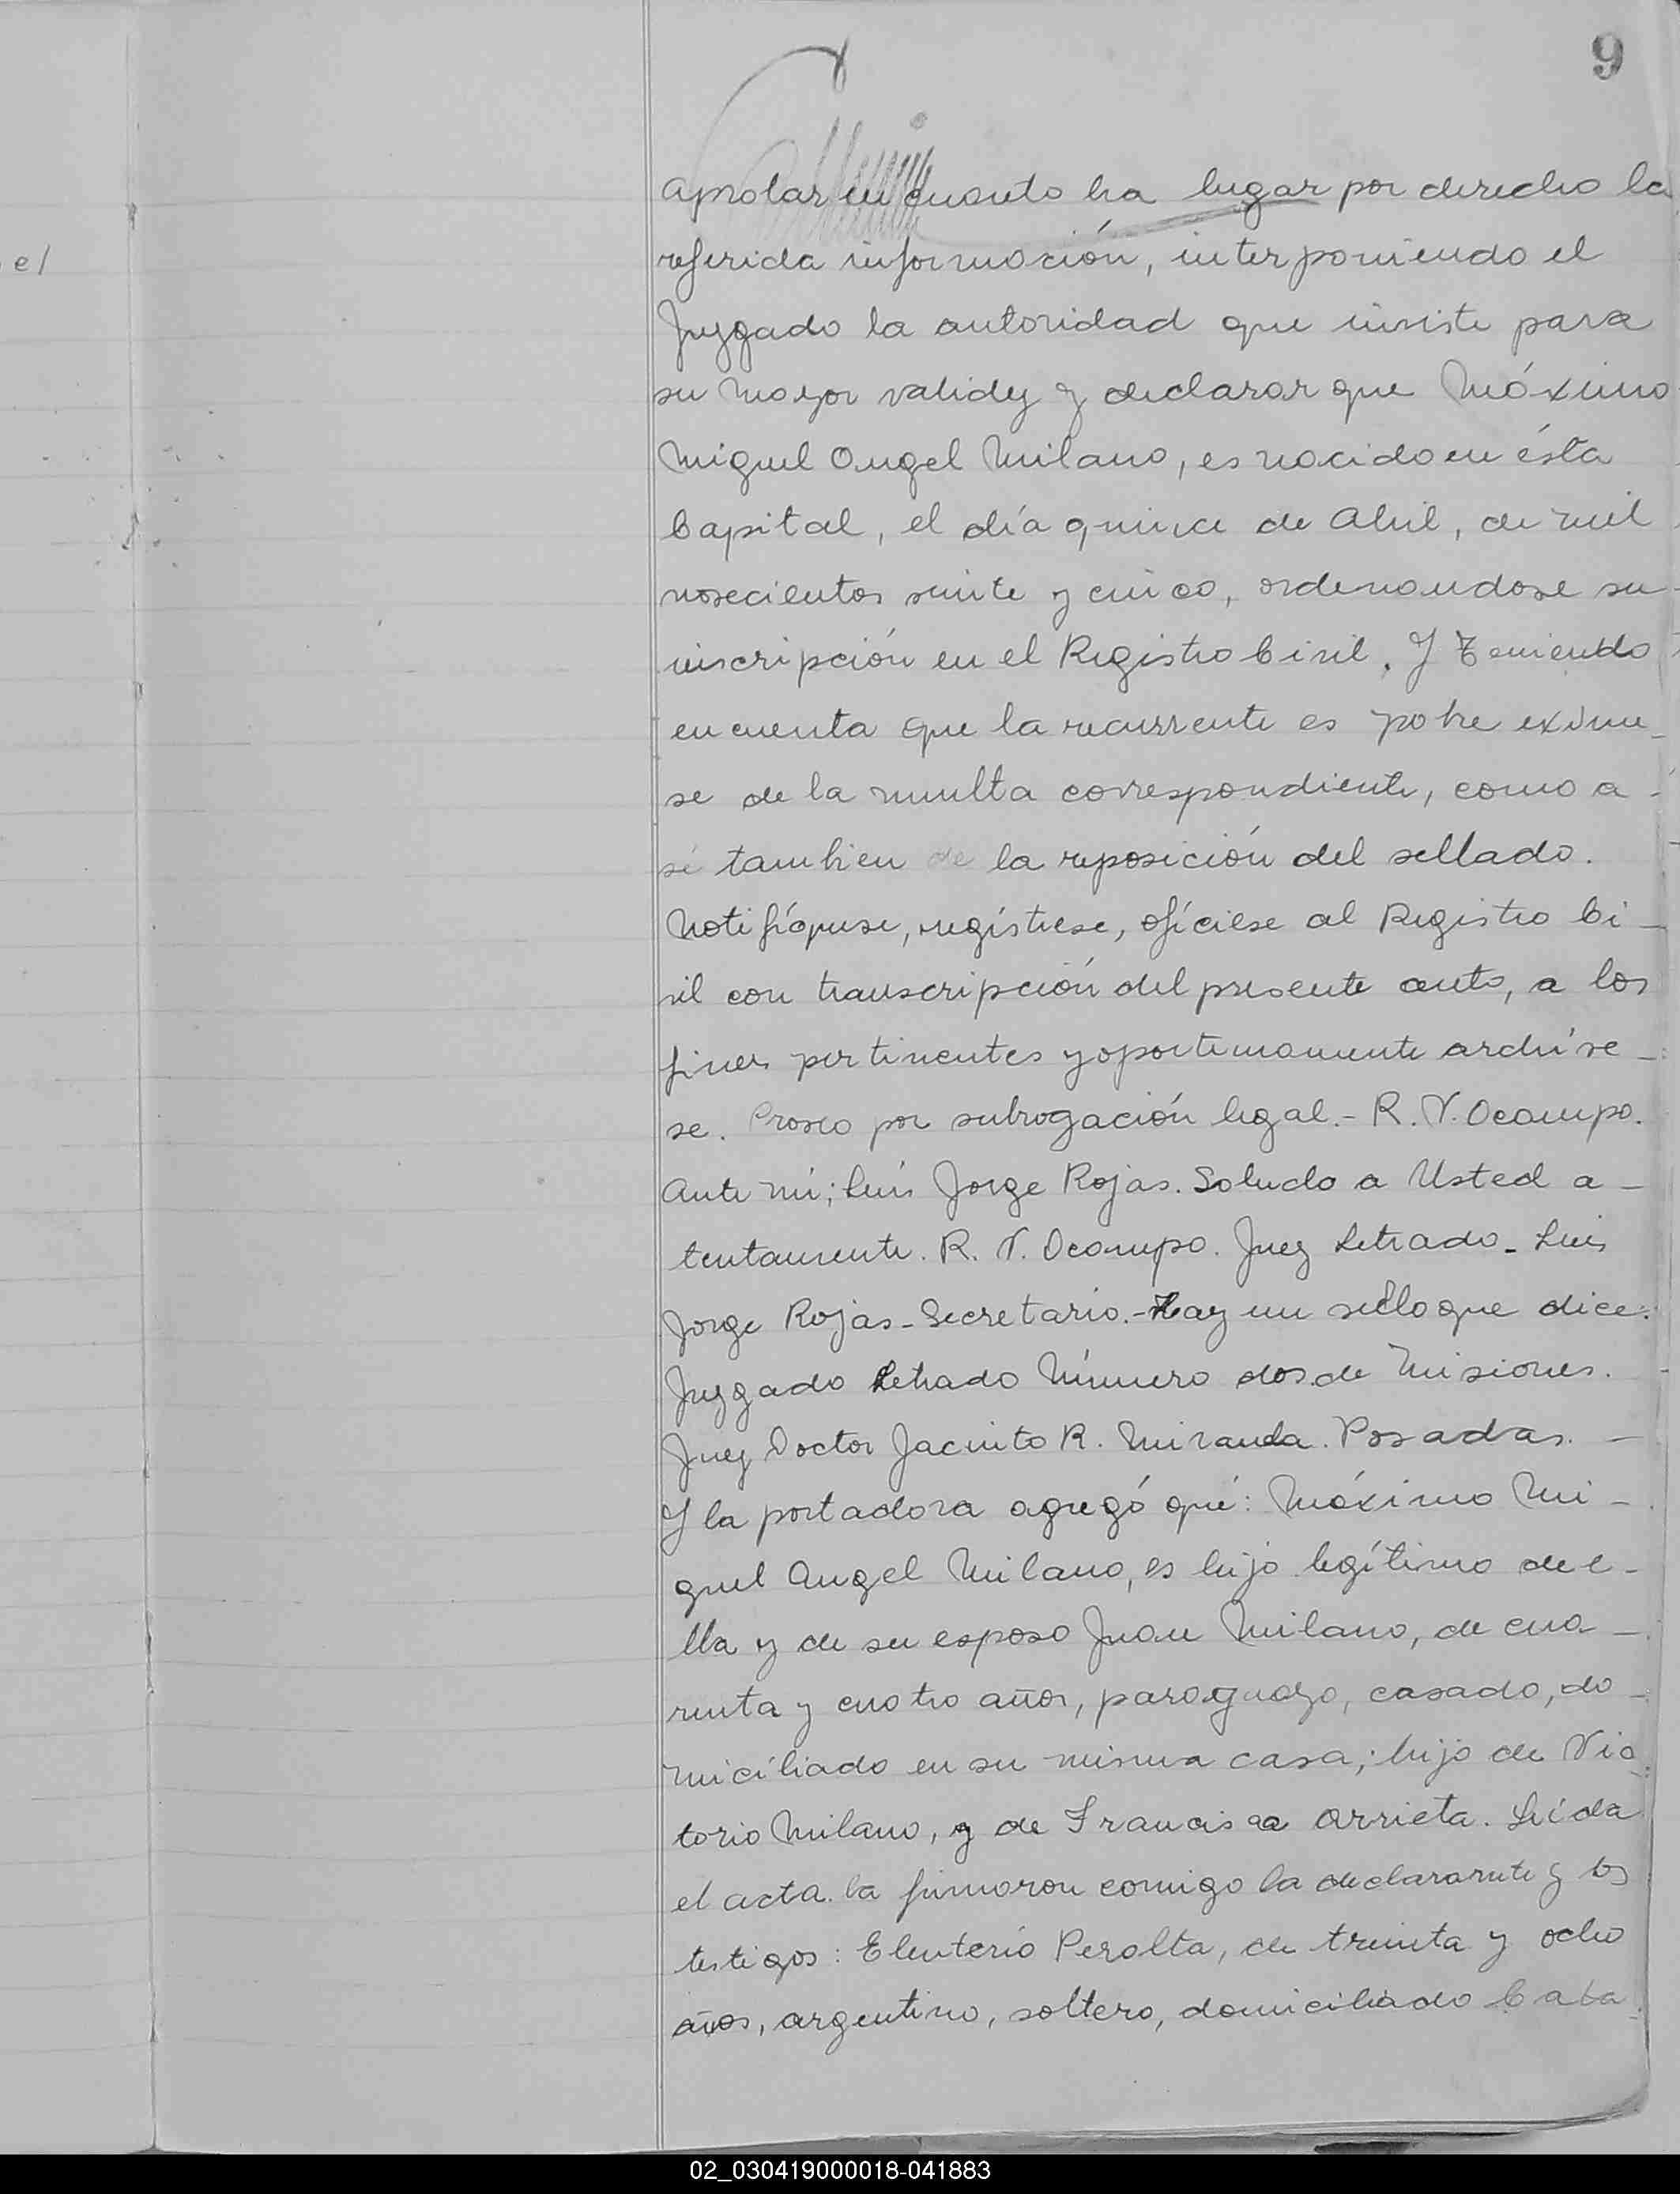 9
aprobar en cuanto ha lugar por derecho la
referida información, interponiendo el
e/
Juzgado la autoridad que inviste para
su mayor validez y declarar que Máximo
Miguel Angel Milano, es nacido en ésta
Capital, el día quince de Abril, de mil
novecientos veinte y cinco, ordenandose su
inscripción en el Registro Civil. Y teniendo
en cuenta que la recurrente es pobre exima_
se de la multa correspondiente, como a-
sí tambien de la reposición del sellado.
Notifíquese, regístrese, ofíciese al Registro Ci_
vil con transcripción del presente auto, a los
fines pertinentes y oportunamente archíve_
se. Proveo por subrogación legal.- R. V. Ocampo.
Ante mí; Luis Jorge Rojas. Saludo a Usted a_
tentamente. R. V. Ocampo. Juez Letrado_ Luis
Jorge Rojas_Secretario.-Hay un sello que dice:
Juzgado Letrado Número dos de Misiones.
Juez Doctor Jacinto R. Miranda. Posadas. _
Y la portadora agregó qué: Máximo Mi_
guel Angel Milano, es hijo legítimo de e-
lla y de su esposo Juan Milano, de cua_
renta y cuatro años, paraguayo, casado, do_
miciliado en su misma casa; hijo de Vic_
torio Milano, y de Francisca Arrieta. Leída
el acta. la firmaron comigo la declarante y los
testigos: Eleuterio Peralta, de treinta y ocho
años, argentino, soltero, domiciliado Caba
02_030419000018-041883